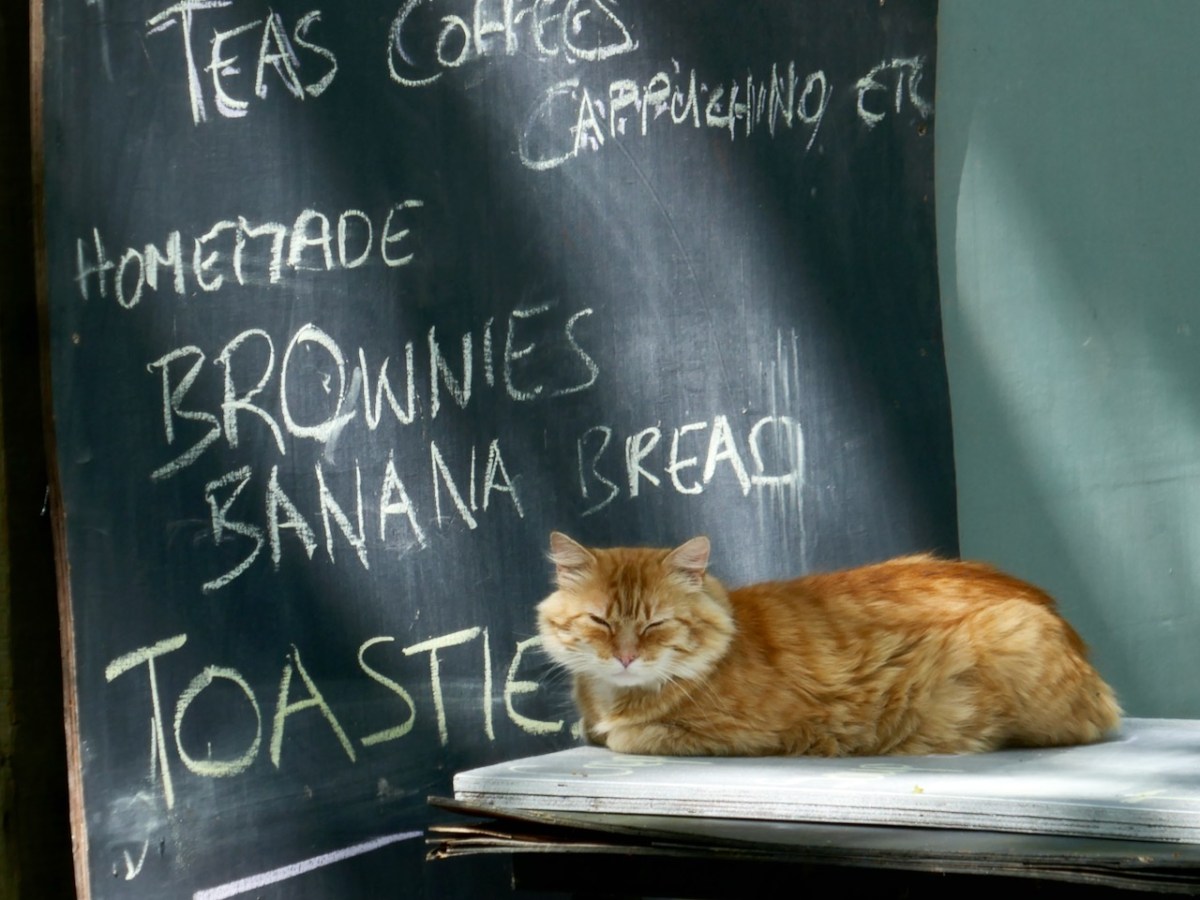 TEAS COFFEES
CAPPUCHINO ETC
HOMEMADE
BROWNIES
BANANA BREAD
TOASTIE